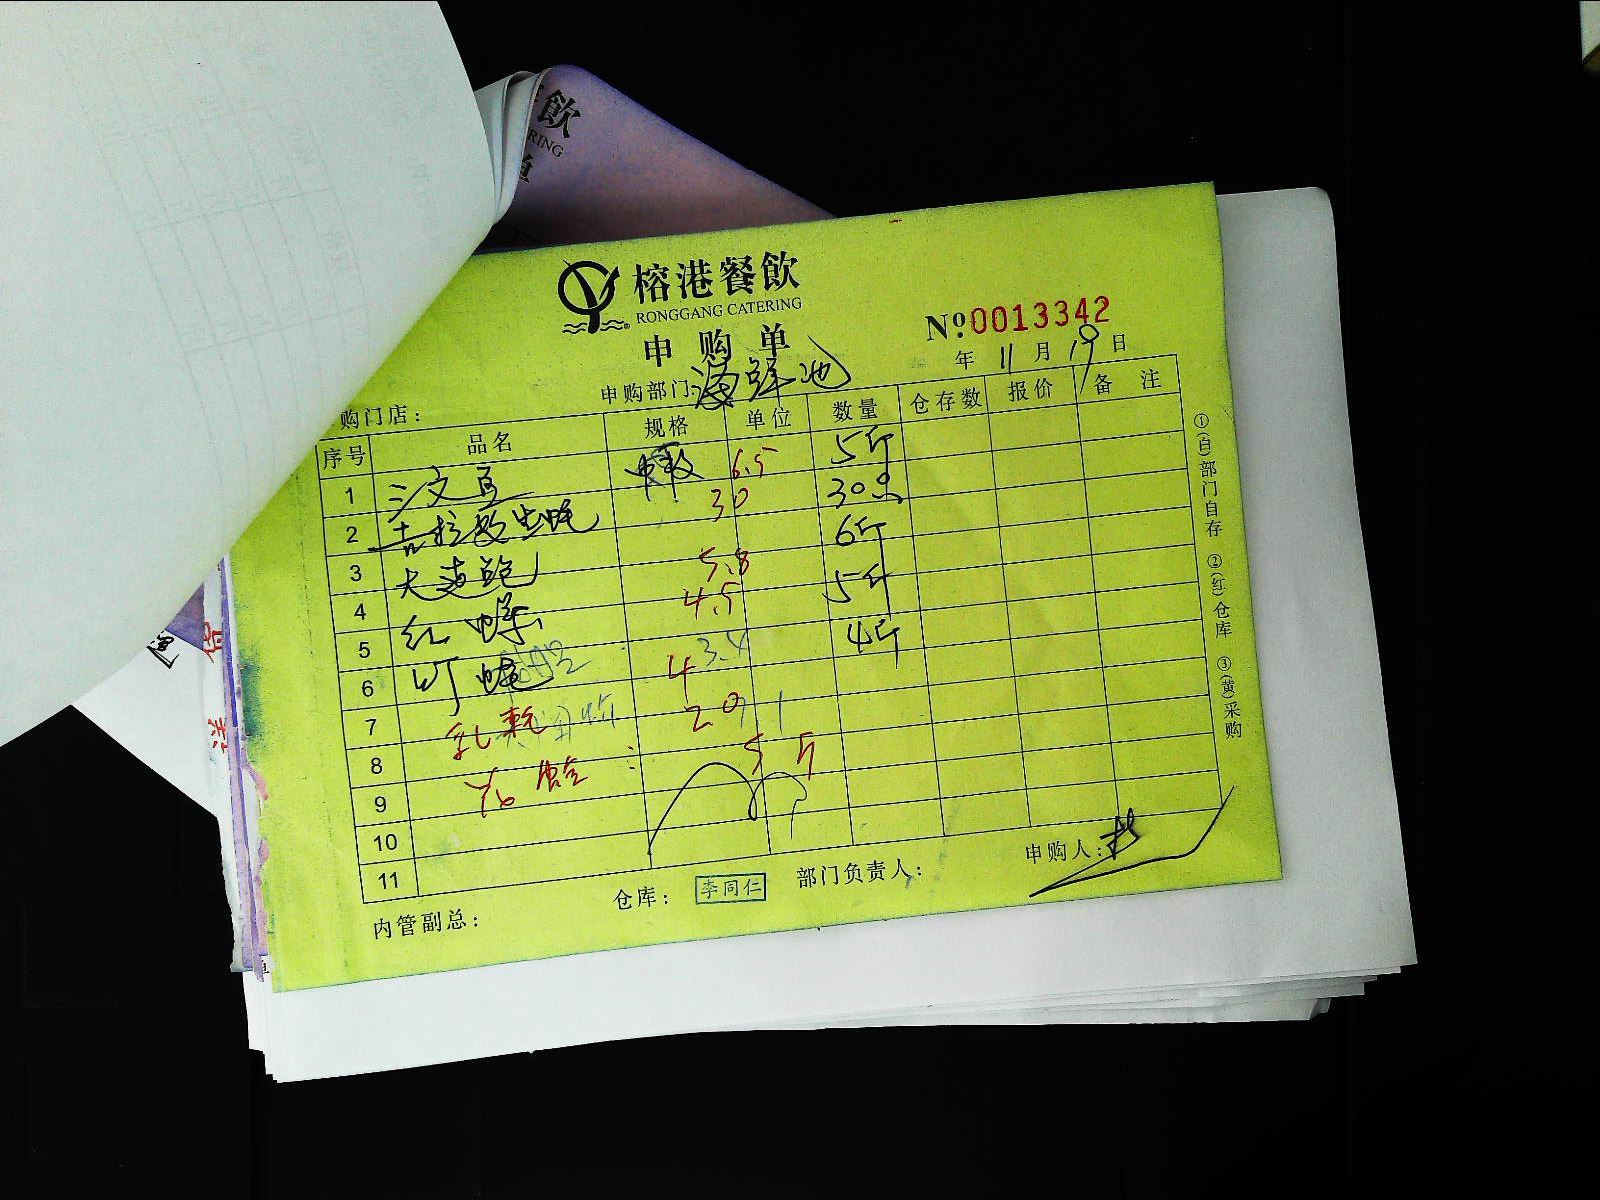 飲
RING
单
榕港餐飲
RONGGANG CATERING
申购单
№0013342
年 11 月 19 日
购门店：
申购部门：海鲜池
序号 品名 规格 单位 数量 仓存数 报价 备 注
1 三文鱼 6.5 5斤
2 吉拉多生蚝 30 30只
3 大连鲍 6斤
4 红 5.8 5斤
5 4.5 4斤
6 4 3.4
7 20
8 55
9
10
11
①(白)部门自存 ②(红)仓库 ③(黄)采购
内管副总：
仓库： 李同仁
部门负责人：
申购人：